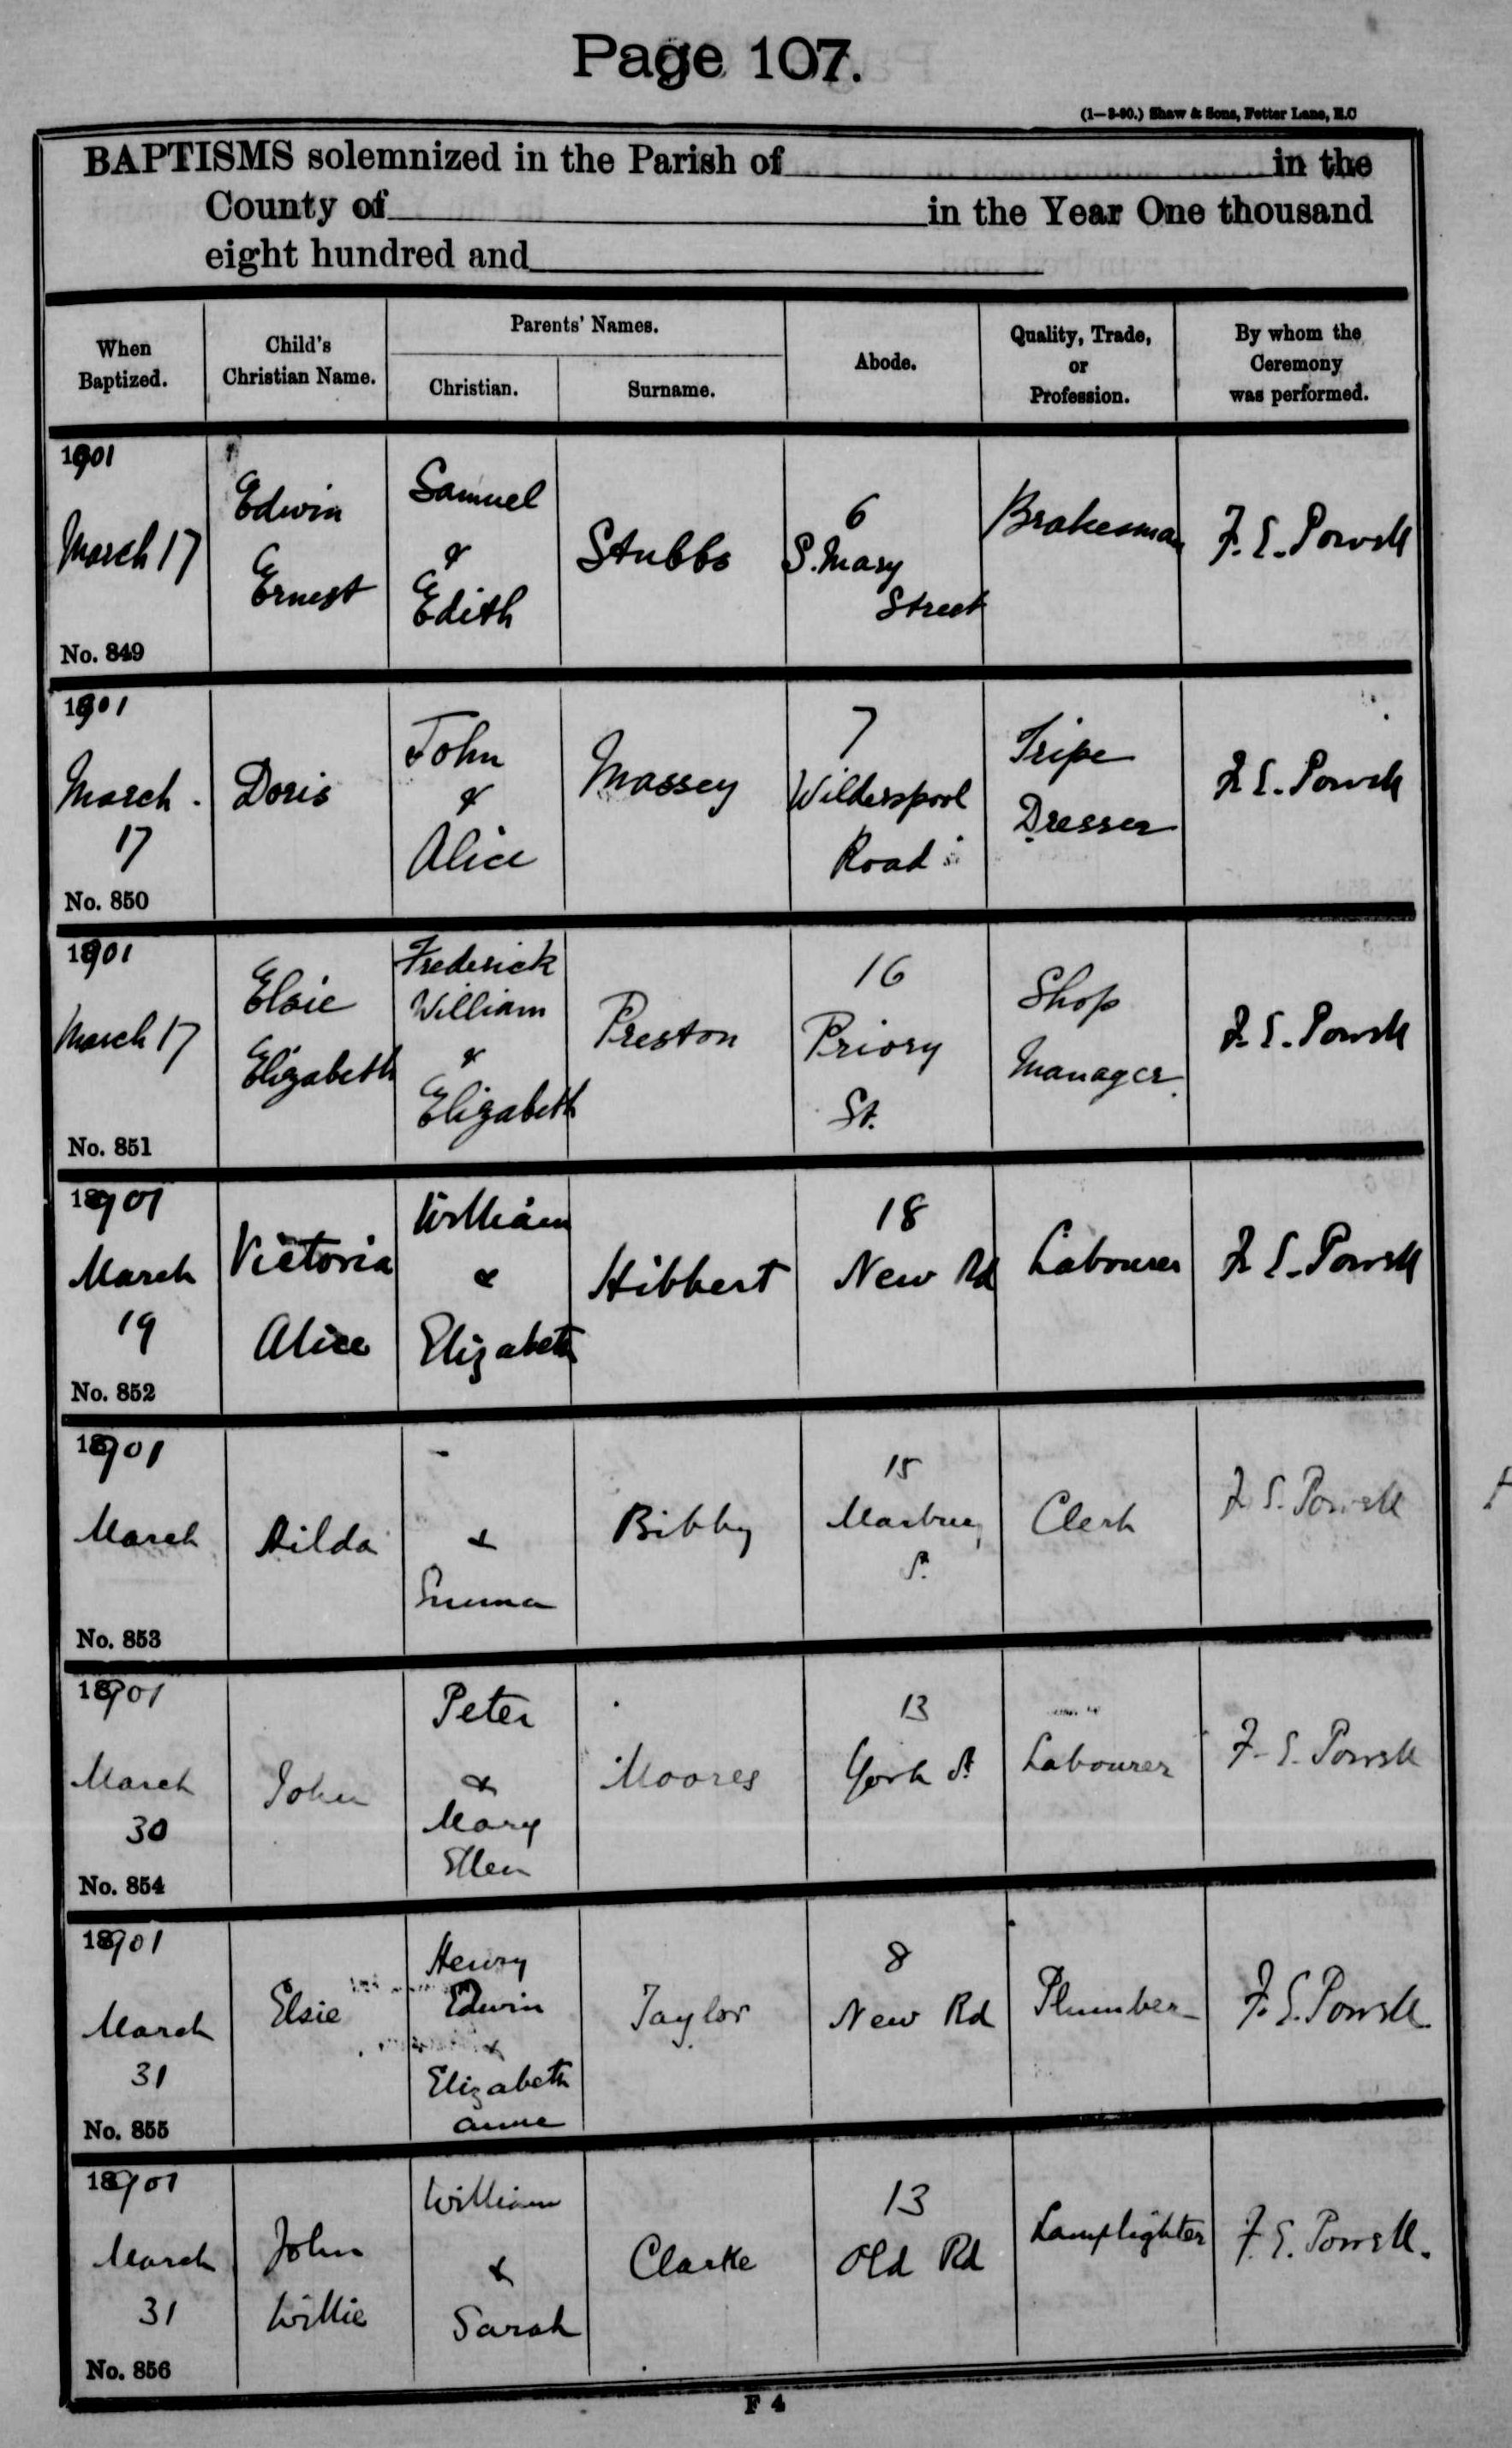 Page 107.
(1—8-90.) Shaw & Sons, Fetter Lane, E.C
BAPTISMS solemnized in the Parish of in the
County of in the Year One thousand
eight hundred and
When Baptized.
Child's Christian Name.
Parents' Names.
Christian.
Surname.
Abode.
Quality, Trade, or Profession.
By whom the Ceremony was performed.
1901
March 17
No. 849
Edwin
Ernest
Samuel
&
Edith
Stubbs
6
S. Mary
Street
Brakesman
F. E. Powell
1901
March
17
No. 850
Doris
John
&
Alice
Massey
7
Wilderspool
Road
Tripe
Dresser
F. E. Powell
1901
March 17
No. 851
Elsie
Elizabeth
Frederick
William
&
Elizabeth
Preston
16
Priory
St.
Shop
Manager
F. E. Powell
1901
March
19
No. 852
Victoria
Alice
William
&
Elizabeth
Hibbert
18
New Rd
Labourer
F. E. Powell
1901
March
No. 853
Hilda
&
Emma
Bibby
15
St.
Clerk
F. E. Powell
1901
March
30
No. 854
John
Peter
&
Mary
Ellen
Moores
13
York St
Labourer
F. E. Powell
1901
March
31
No. 855
Elsie
Henry
Edwin
&
Elizabeth
Anne
Taylor
8
New Rd
Plumber
F. E. Powell
1901
March
31
No. 856
John
Willie
William
&
Sarah
Clarke
13
Old Rd
Lamplighter
F. E. Powell.
F 4